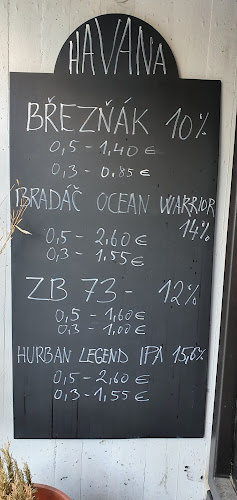 HAVANA
BŘEZŇÁK 10%
0,5 - 1,40 €
0,3 - 0,85 €
BRADÁČ OCEAN WARRIOR
14%
0,5 - 2,60 €
0,3 - 1.55 €
ZB 73 - 12%
0,5 - 1,60 €
0,3 - 1,00 €
HURBAN LEGEND IPA 15,6%
0,5 - 2,60 €
0,3 - 1,55 €